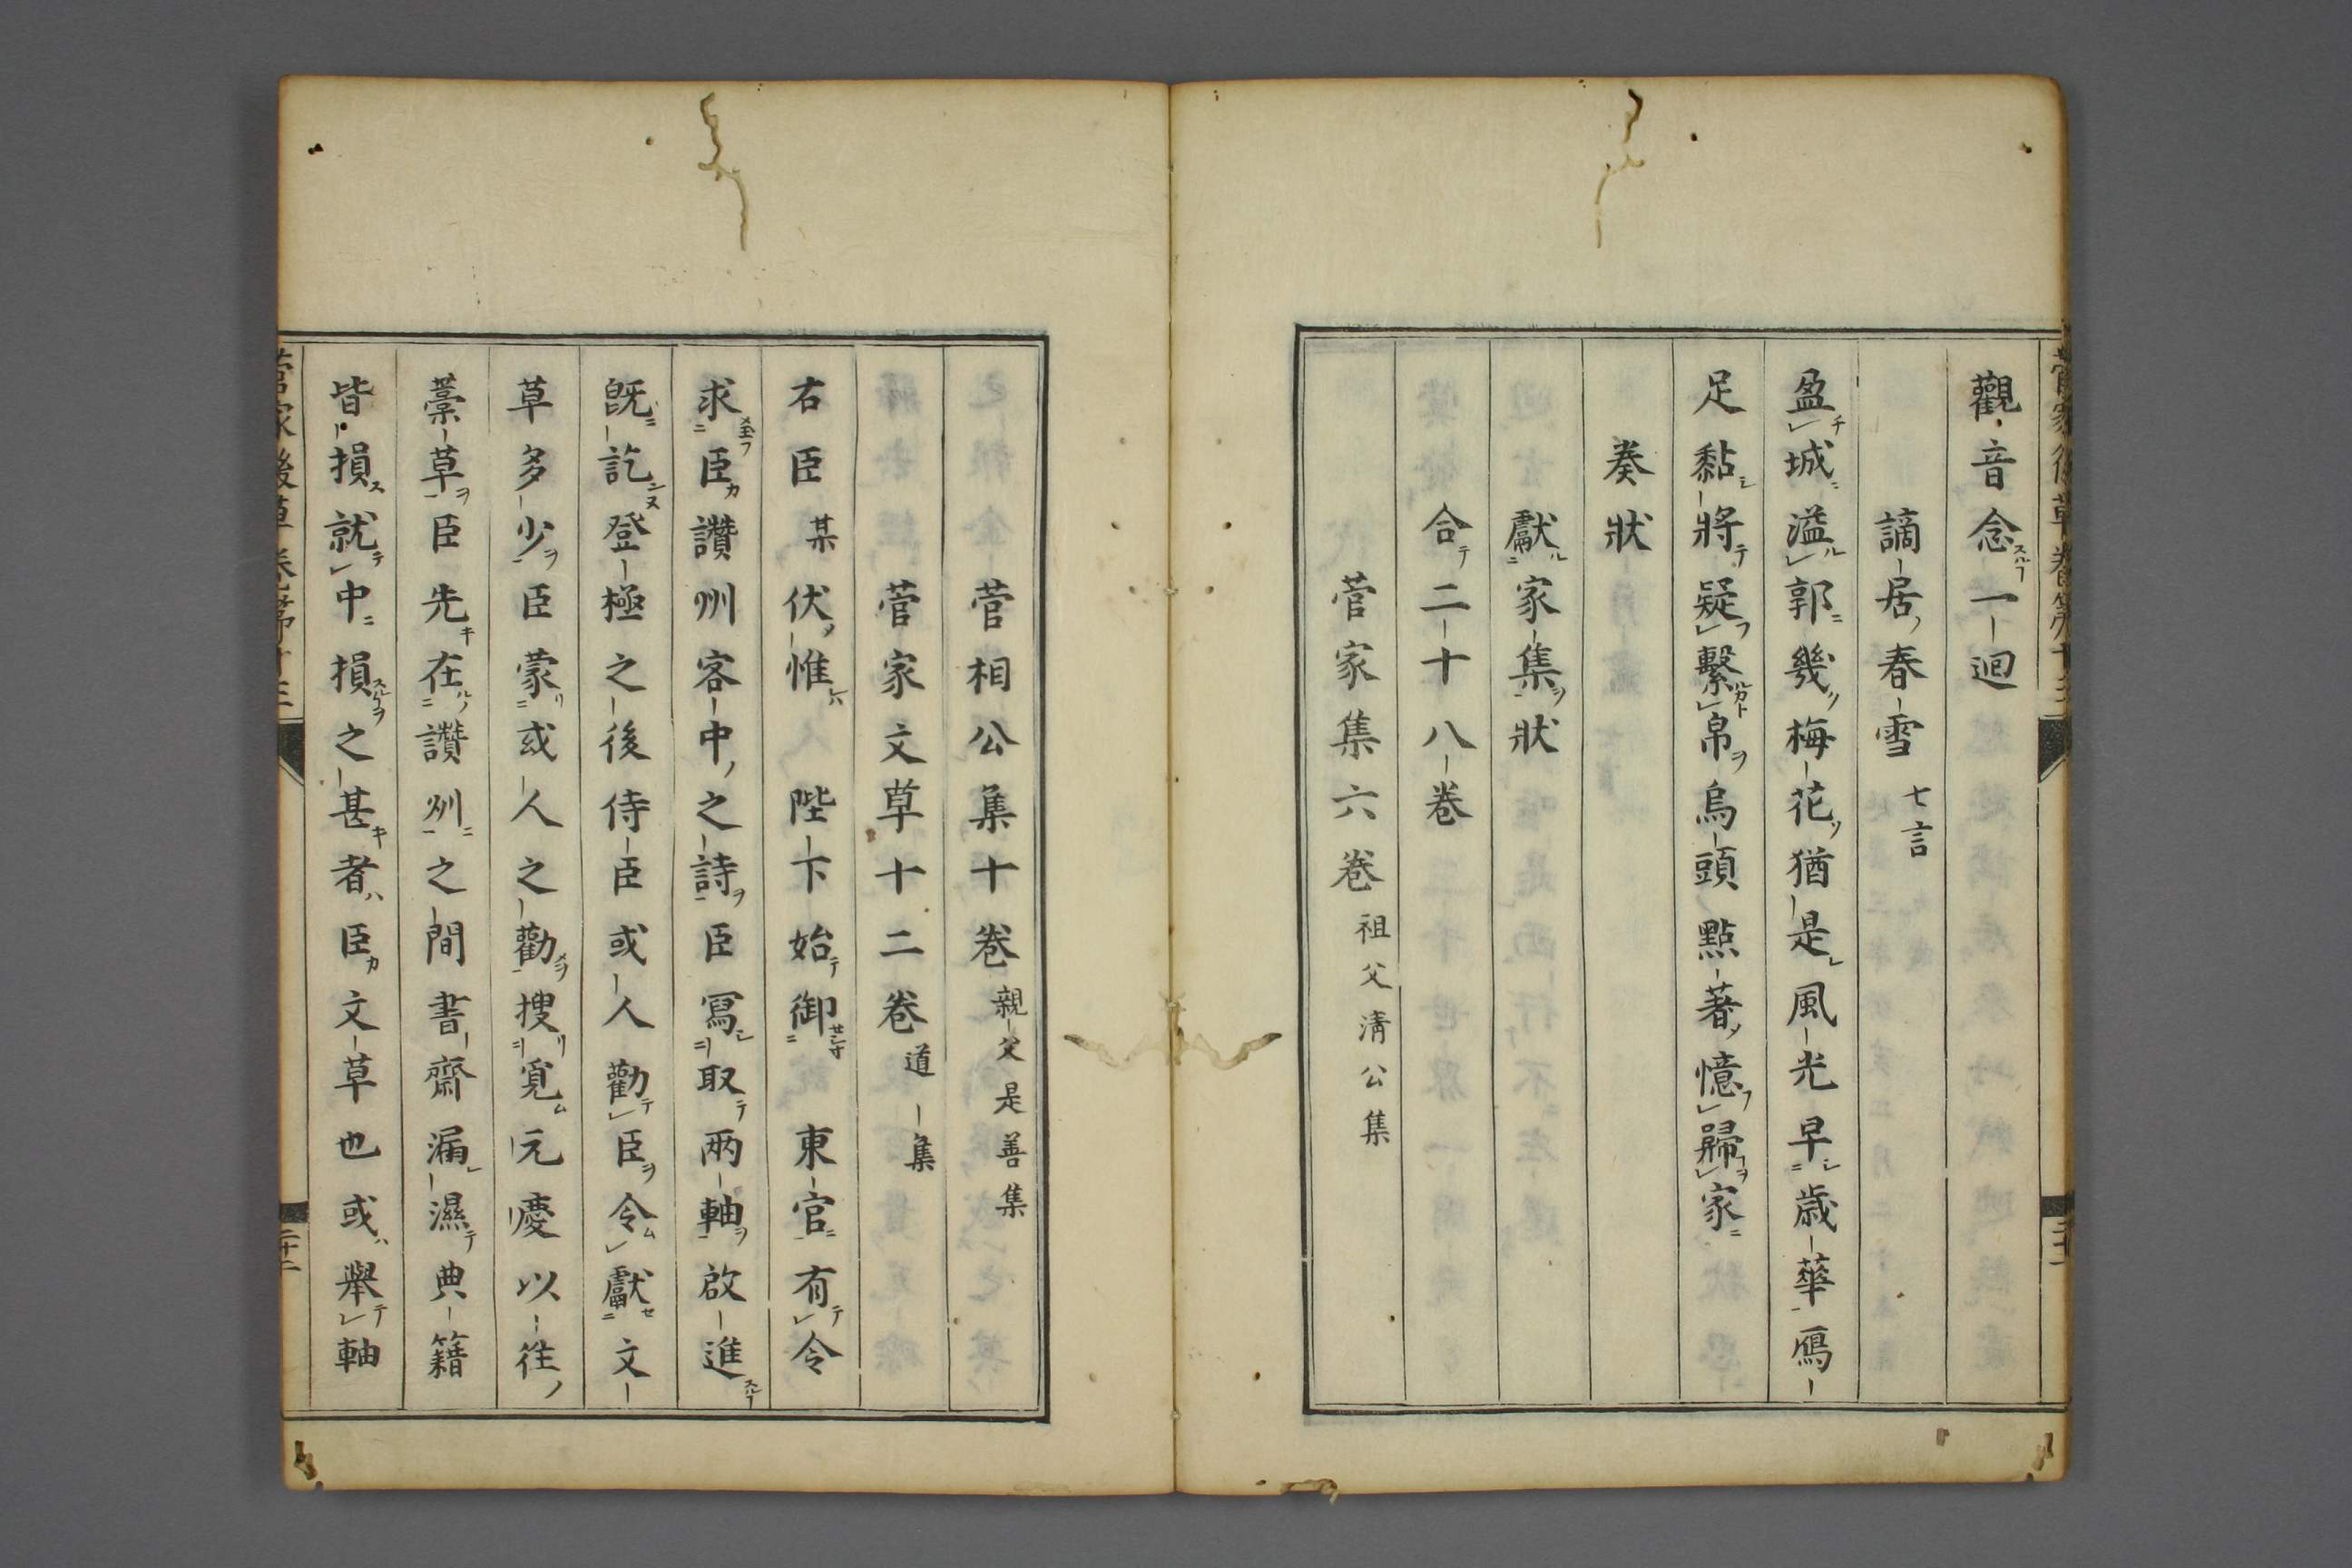 觀音念一迴
謫居春雪 七言
盈城溢郭幾梅花猶是風光早歲華鴈
足黏將疑繫帛烏頭點著憶歸家
奏狀
獻家集狀
合二十八卷
菅家集六卷 祖父清公集
菅相公集十卷 親父是善集
菅家文草十二卷 道集
右臣某伏惟 陛下始御 東宮有令
求臣讚州客中之詩臣寫取兩軸啟進
既訖登極之後侍臣或人勸臣令獻文
草多少臣蒙或人之勸搜覓元慶以往
藁草臣先在讚州之間書齋漏濕典籍
皆損就中損之甚者臣文草也或舉軸